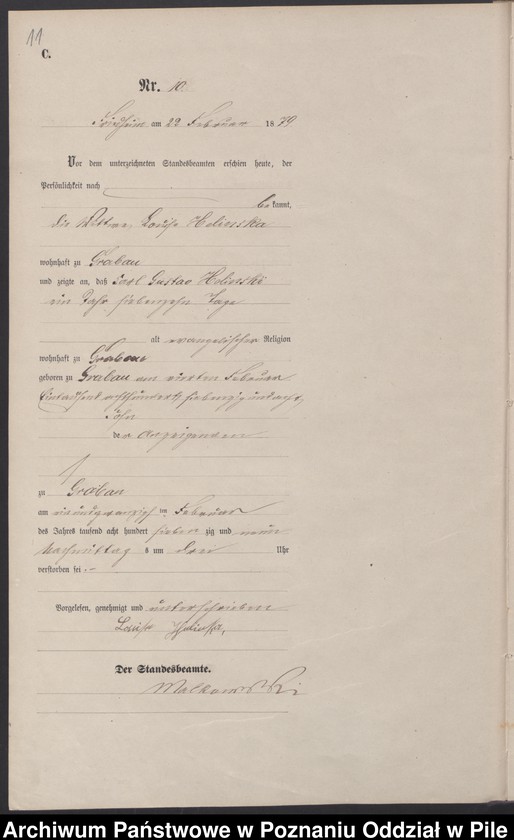 11
C.
Nr. 10
am 22 Februar 1879
Vor dem unterzeichneten Standesbeamten erschien heute, der
Persönlichkeit nach
bekannt,
die Wittwe, Louise Holinska
wohnhaft zu Grabau
und zeigte an, daß Carl Gustav Holinski
ein Jahr siebenzehn Tage
alt evangelischer Religion
wohnhaft zu Grabau
geboren zu Grabau am vierten Februar
Eintausend achthundert siebenzig und acht,
Sohn
der Anzeigenden
zu Grabau
am ten Februar
des Jahres tausend acht hundert sieben zig und neun
Nachmittag s um drei Uhr
verstorben sei.
Vorgelesen, genehmigt und unterschrieben
Louise Holinska,
Der Standesbeamte.
Malkowski
Archiwum Państwowe w Poznaniu Oddział w Pile